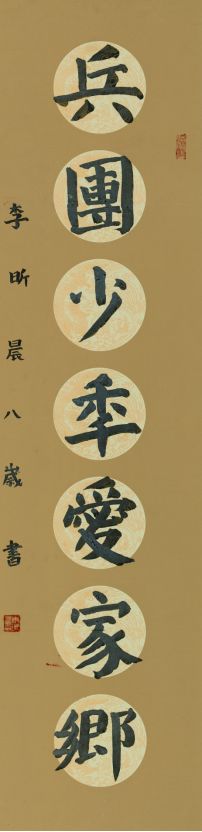 兵團少年愛家鄉
李昕晨八歲書